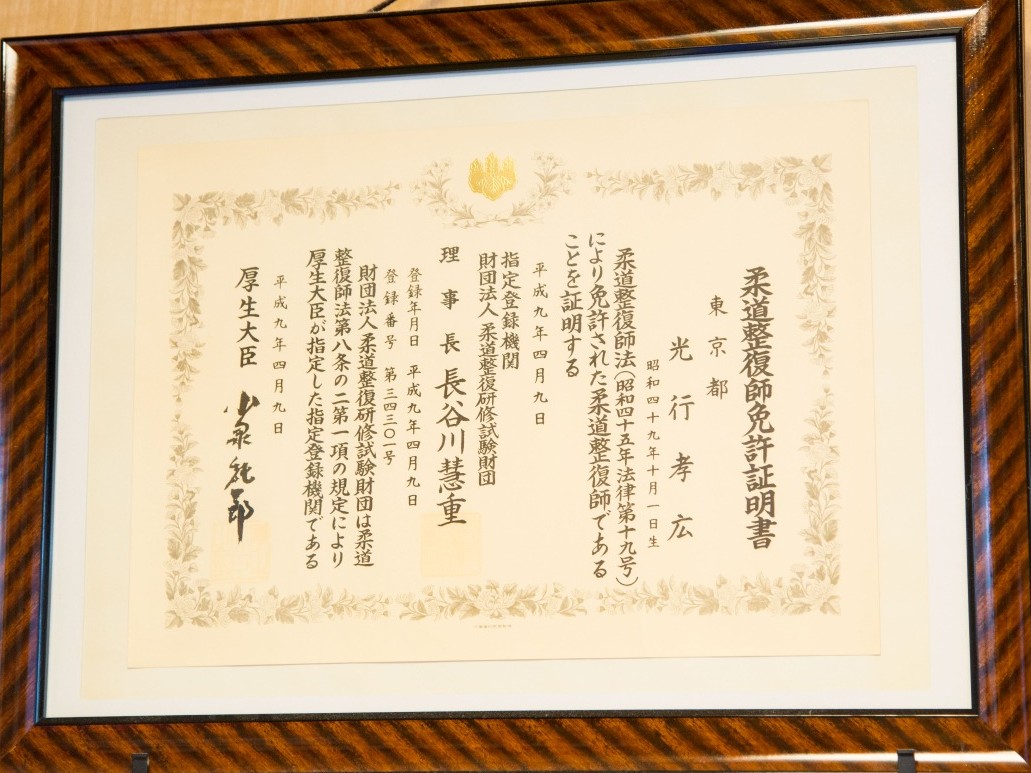 柔道整復師免許証明書
東京都
光行孝広
昭和四十九年十月一日生
柔道整復師法(昭和四十五年法律第十九号)
により免許された柔道整復師である
ことを証明する
平成九年四月九日
指定登録機関
財団法人 柔道整復研修試験財団
理事長 長谷川慧重
登録年月日 平成九年四月九日
登録番号 第三四三〇一号
財団法人柔道整復研修試験財団は柔道
整復師法第八条の二第一項の規定により
厚生大臣が指定した指定登録機関である
平成九年四月九日
厚生大臣 小泉純一郎